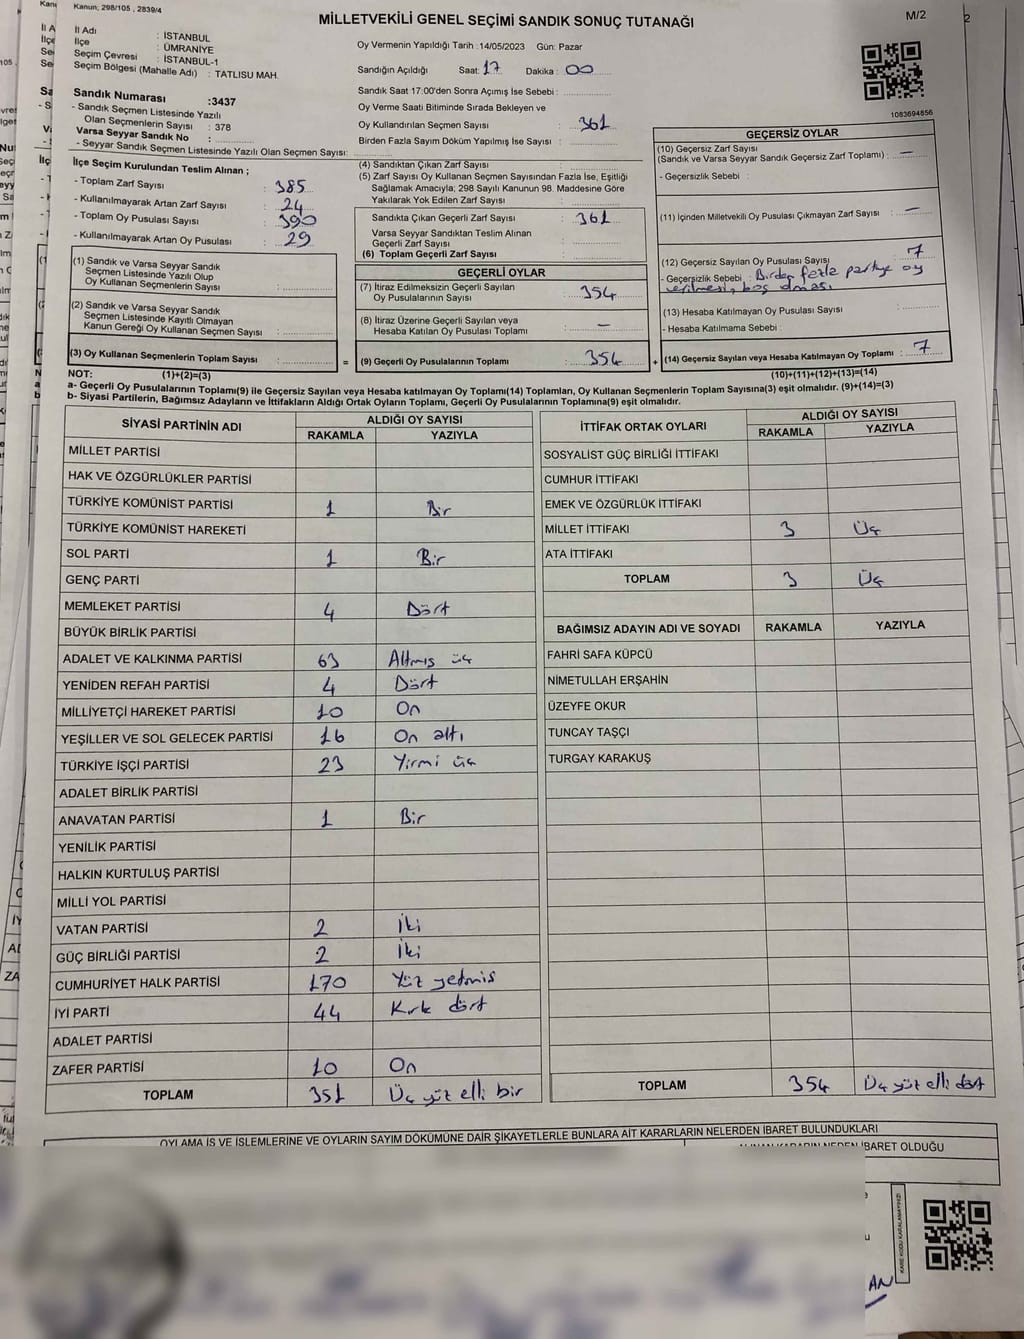 Kanun; 298/105 , 2839/4
MİLLETVEKİLİ GENEL SEÇİMİ SANDIK SONUÇ TUTANAĞI
M/2
İl Adı : İSTANBUL
İlçe : ÜMRANİYE
Seçim Çevresi : İSTANBUL-1
Seçim Bölgesi (Mahalle Adı) : TATLISU MAH.
Oy Vermenin Yapıldığı Tarih :14/05/2023 Gün: Pazar
Sandığın Açıldığı Saat: 17 Dakika : 00
Sandık Saat 17:00'den Sonra Açımış İse Sebebi :
Oy Verme Saati Bitiminde Sırada Bekleyen ve
Oy Kullandırılan Seçmen Sayısı : 361
Birden Fazla Sayım Döküm Yapılmış İse Sayısı :
1083694856
Sandık Numarası :3437
- Sandık Seçmen Listesinde Yazılı
Olan Seçmenlerin Sayısı : 378
Varsa Seyyar Sandık No :
- Seyyar Sandık Seçmen Listesinde Yazılı Olan Seçmen Sayısı:
İlçe Seçim Kurulundan Teslim Alınan ;
- Toplam Zarf Sayısı : 385
- Kullanılmayarak Artan Zarf Sayısı : 24
- Toplam Oy Pusulası Sayısı : 390
- Kullanılmayarak Artan Oy Pusulası : 29
(1) Sandık ve Varsa Seyyar Sandık
Seçmen Listesinde Yazılı Olup
Oy Kullanan Seçmenlerin Sayısı :
(2) Sandık ve Varsa Seyyar Sandık
Seçmen Listesinde Kayıtlı Olmayan
Kanun Gereği Oy Kullanan Seçmen Sayısı :
(3) Oy Kullanan Seçmenlerin Toplam Sayısı :
(1)+(2)=(3)
(4) Sandıktan Çıkan Zarf Sayısı :
(5) Zarf Sayısı Oy Kullanan Seçmen Sayısından Fazla İse, Eşitliği
Sağlamak Amacıyla; 298 Sayılı Kanunun 98. Maddesine Göre
Yakılarak Yok Edilen Zarf Sayısı :
Sandıkta Çıkan Geçerli Zarf Sayısı : 361
Varsa Seyyar Sandıktan Teslim Alınan
Geçerli Zarf Sayısı :
(6) Toplam Geçerli Zarf Sayısı :
GEÇERLİ OYLAR
(7) İtiraz Edilmeksizin Geçerli Sayılan
Oy Pusulalarının Sayısı : 354
(8) İtiraz Üzerine Geçerli Sayılan veya
Hesaba Katılan Oy Pusulası Toplamı : —
= (9) Geçerli Oy Pusulalarının Toplamı : 354 +
GEÇERSİZ OYLAR
(10) Geçersiz Zarf Sayısı
(Sandık ve Varsa Seyyar Sandık Geçersiz Zarf Toplamı) : —
- Geçersizlik Sebebi :
(11) İçinden Milletvekili Oy Pusulası Çıkmayan Zarf Sayısı : —
(12) Geçersiz Sayılan Oy Pusulası Sayısı : 7
- Geçersizlik Sebebi : Birden fazla partiye oy
verilmesi, boş olması
(13) Hesaba Katılmayan Oy Pusulası Sayısı :
- Hesaba Katılmama Sebebi :
(14) Geçersiz Sayılan veya Hesaba Katılmayan Oy Toplamı : 7
(10)+(11)+(12)+(13)=(14)
NOT:
a- Geçerli Oy Pusulalarının Toplamı(9) ile Geçersiz Sayılan veya Hesaba katılmayan Oy Toplamı(14) Toplamları, Oy Kullanan Seçmenlerin Toplam Sayısına(3) eşit olmalıdır. (9)+(14)=(3)
b- Siyasi Partilerin, Bağımsız Adayların ve İttifakların Aldığı Ortak Oyların Toplamı, Geçerli Oy Pusulalarının Toplamına(9) eşit olmalıdır.
SİYASİ PARTİNİN ADI ALDIĞI OY SAYISI
RAKAMLA YAZIYLA
MİLLET PARTİSİ
HAK VE ÖZGÜRLÜKLER PARTİSİ
TÜRKİYE KOMÜNİST PARTİSİ 1 Bir
TÜRKİYE KOMÜNİST HAREKETİ
SOL PARTİ 1 Bir
GENÇ PARTİ
MEMLEKET PARTİSİ 4 Dört
BÜYÜK BİRLİK PARTİSİ
ADALET VE KALKINMA PARTİSİ 63 Altmış üç
YENİDEN REFAH PARTİSİ 4 Dört
MİLLİYETÇİ HAREKET PARTİSİ 10 On
YEŞİLLER VE SOL GELECEK PARTİSİ 16 On altı
TÜRKİYE İŞÇİ PARTİSİ 23 Yirmi üç
ADALET BİRLİK PARTİSİ
ANAVATAN PARTİSİ 1 Bir
YENİLİK PARTİSİ
HALKIN KURTULUŞ PARTİSİ
MİLLİ YOL PARTİSİ
VATAN PARTİSİ 2 İki
GÜÇ BİRLİĞİ PARTİSİ 2 İki
CUMHURİYET HALK PARTİSİ 170 Yüz yetmiş
İYİ PARTİ 44 Kırk dört
ADALET PARTİSİ
ZAFER PARTİSİ 10 On
TOPLAM 351 Üç yüz elli bir
İTTİFAK ORTAK OYLARI ALDIĞI OY SAYISI
RAKAMLA YAZIYLA
SOSYALİST GÜÇ BİRLİĞİ İTTİFAKI
CUMHUR İTTİFAKI
EMEK VE ÖZGÜRLÜK İTTİFAKI
MİLLET İTTİFAKI 3 Üç
ATA İTTİFAKI
TOPLAM 3 Üç
BAĞIMSIZ ADAYIN ADI VE SOYADI RAKAMLA YAZIYLA
FAHRİ SAFA KÜPCÜ
NİMETULLAH ERŞAHİN
ÜZEYFE OKUR
TUNCAY TAŞÇI
TURGAY KARAKUŞ
TOPLAM 354 Üç yüz elli dört
OYLAMA İŞ VE İŞLEMLERİNE VE OYLARIN SAYIM DÖKÜMÜNE DAİR ŞİKAYETLERLE BUNLARA AİT KARARLARIN NELERDEN İBARET BULUNDUKLARI
İBARET OLDUĞU
KARE KODU KARALAMAYINIZ!